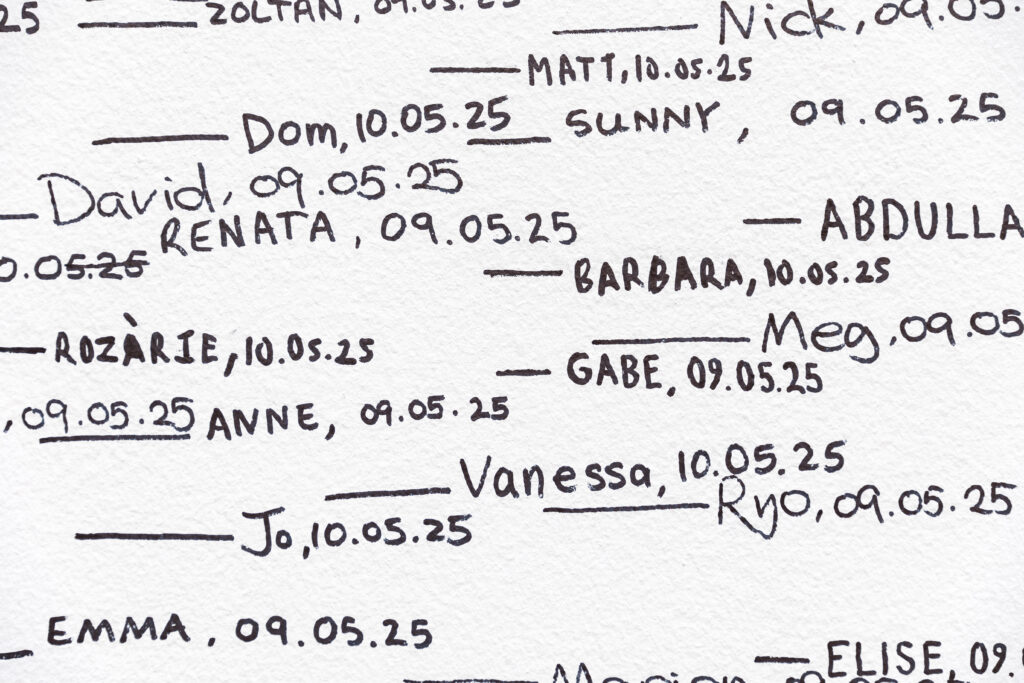 25 — ZOLTÁN, 09.05.25
— Nick, 09.05.
— MATT, 10.05.25
— Dom, 10.05.25
— SUNNY, 09.05.25
— David, 09.05.25
RENATA, 09.05.25
— ABDULLA
0.05.25
— BARBARA, 10.05.25
— Meg, 09.05
— ROZÀRIE, 10.05.25
— GABE, 09.05.25
, 09.05.25
ANNE, 09.05.25
— Vanessa, 10.05.25
— Ryo, 09.05.25
— Jo, 10.05.25
— EMMA, 09.05.25
— ELISE, 09.